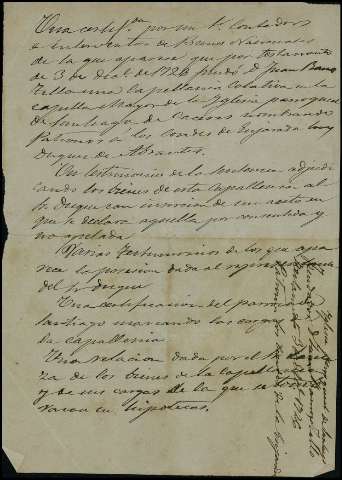 Una certif.on por un Sr. Contador
e Interventor de Bienes Nacionales
de la que aparece que por testamento
de 3 de de 1726 fundó D. Juan
Tello una Capellania Colativa en la
capilla Mayor de la Iglesia parroquial
de Santiago de Caceres nombrando
Patronos á los Condes de la Enjarada hoy
Duques de Abrantes.
Un testimonio de la sentencia adjudi
cando los bienes de esta Capellania al
Sr. Duque con insercion de un auto en
que se declara aquella por consentida y
no apelada
Varios testimonios de los que apa
rece la posesion dada al representante
del Sr. Duque
Una certificacion del parroco de
Santiago marcando las cargas
de la capellania.
Una relacion dada por el
de los bienes de la capellania
y de sus cargas de la que se
en hipotecas.
Iglesia parroquial de Santiago
Fundador D. Juan Tello
1726
Patronos los Condes de la Enjarada